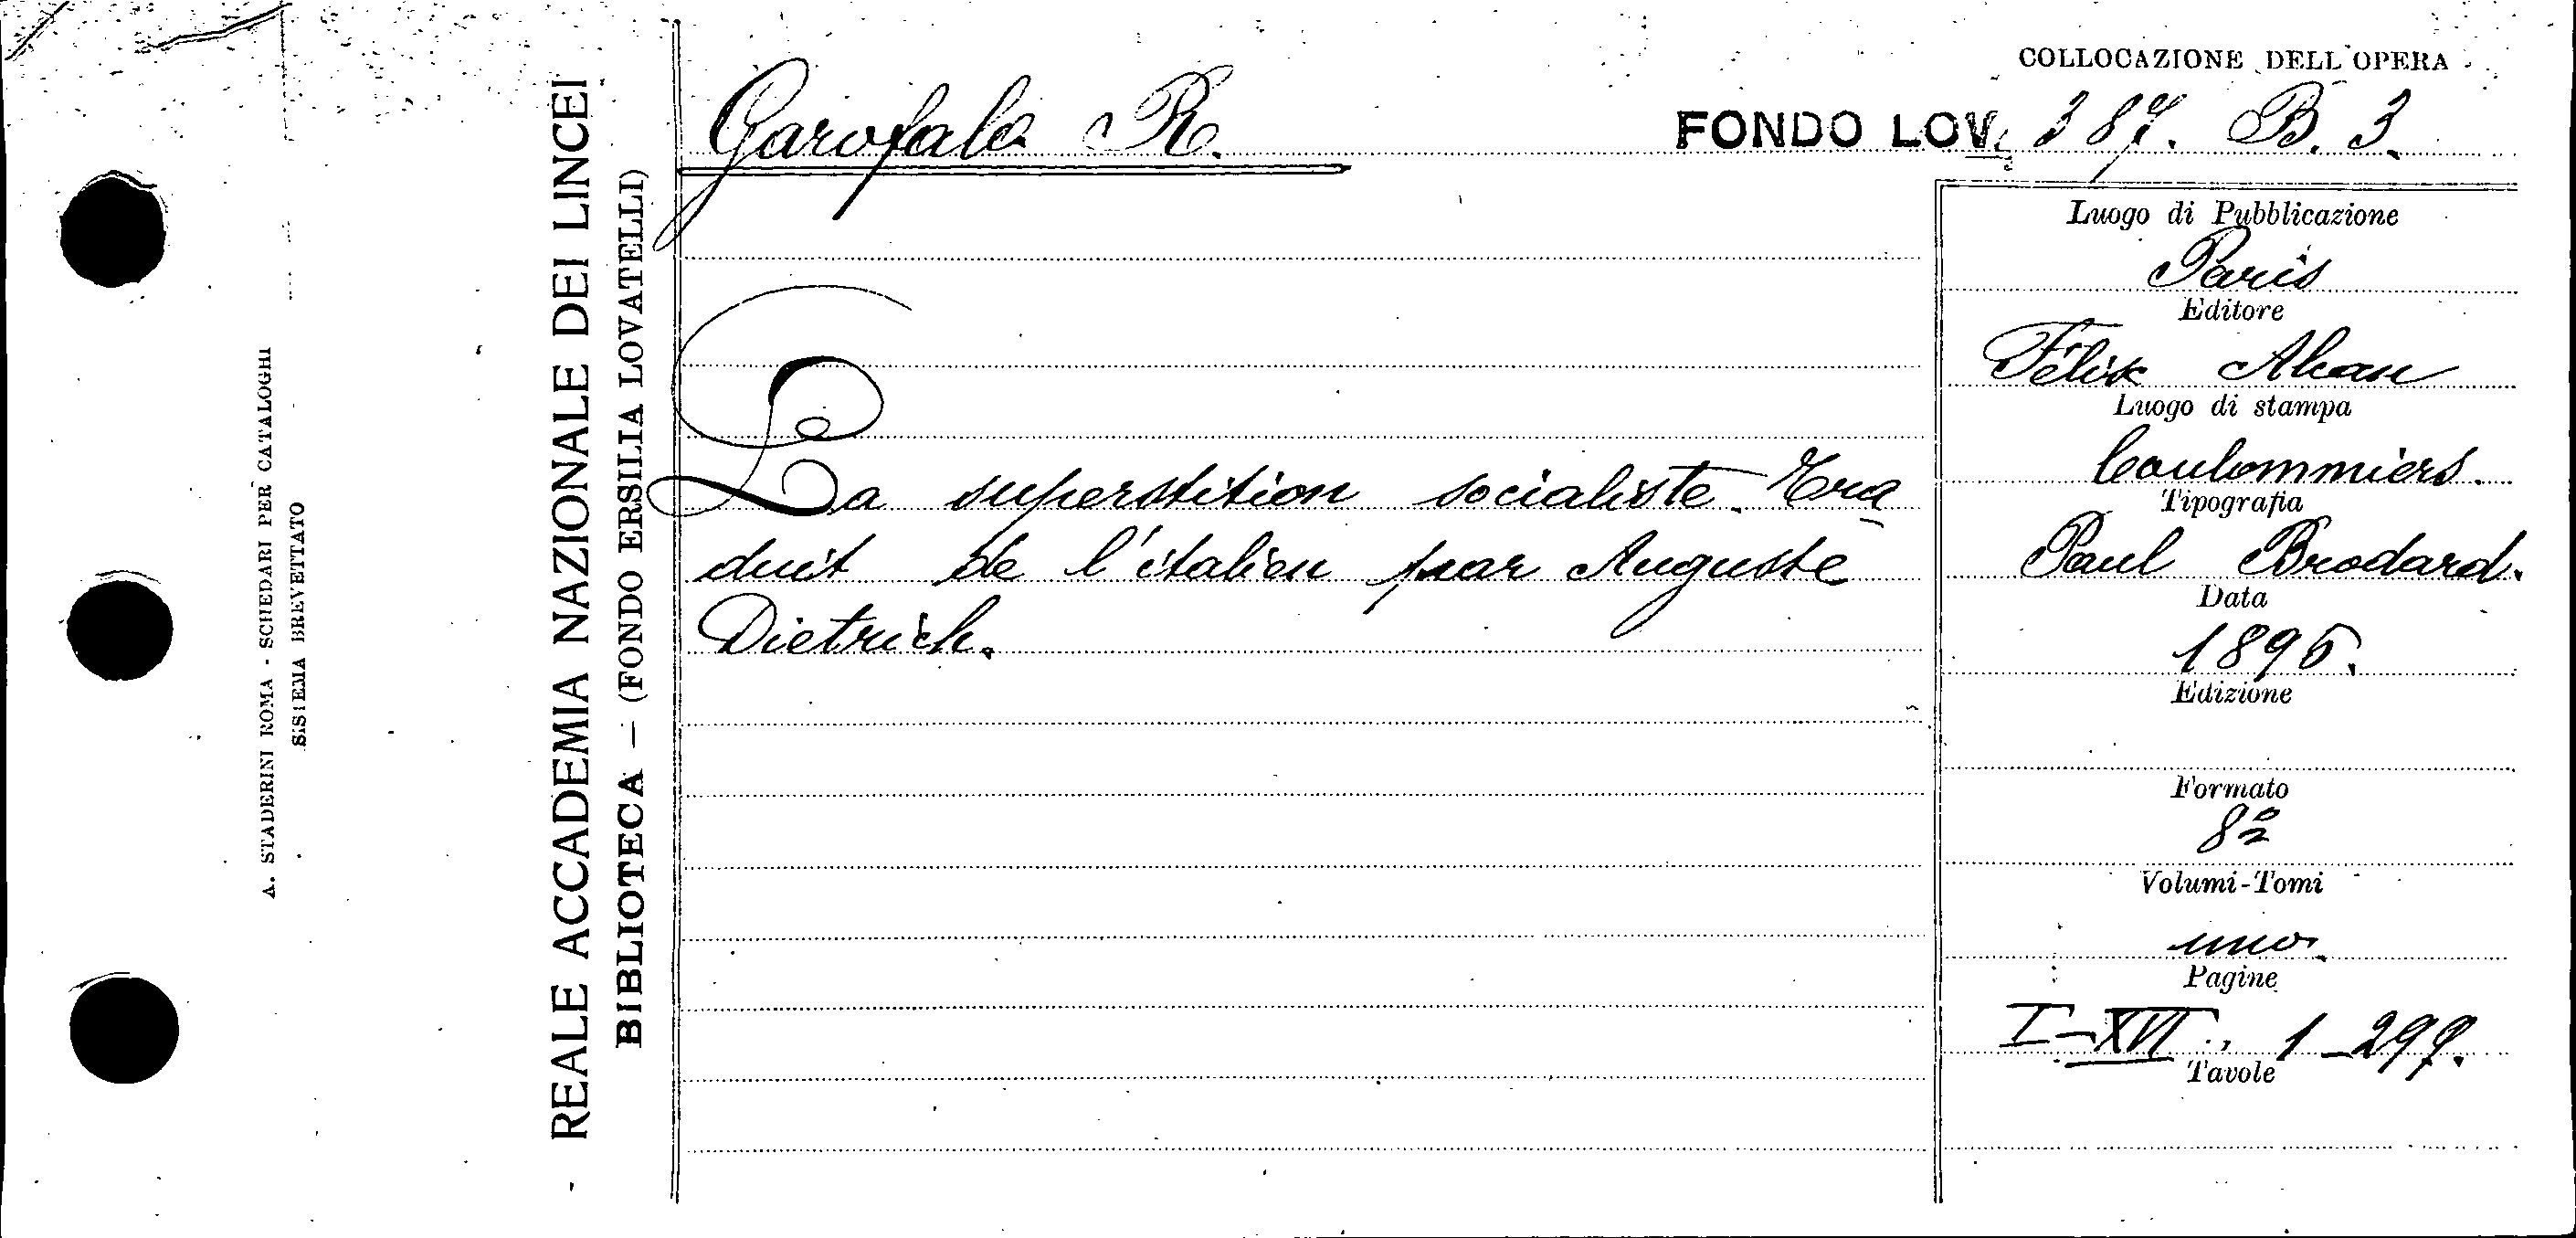 A. STADERINI ROMA - SCHEDARI PER CATALOGHI
SISTEMA BREVETTATO
REALE ACCADEMIA NAZIONALE DEI LINCEI
BIBLIOTECA — (FONDO ERSILIA LOVATELLI)
Garofalo R.
COLLOCAZIONE DELL'OPERA
FONDO LOV. 387. B. 3.
La superstition socialiste. Tra
duit de l'italien par Auguste
Dietrich.
Luogo di Pubblicazione
Paris
Editore
Félix Alcan
Luogo di stampa
Coulommiers.
Tipografia
Paul Brodard.
Data
1895.
Edizione
Formato
8º
Volumi-Tomi
uno.
Pagine
I-XVI., 1-299.
Tavole